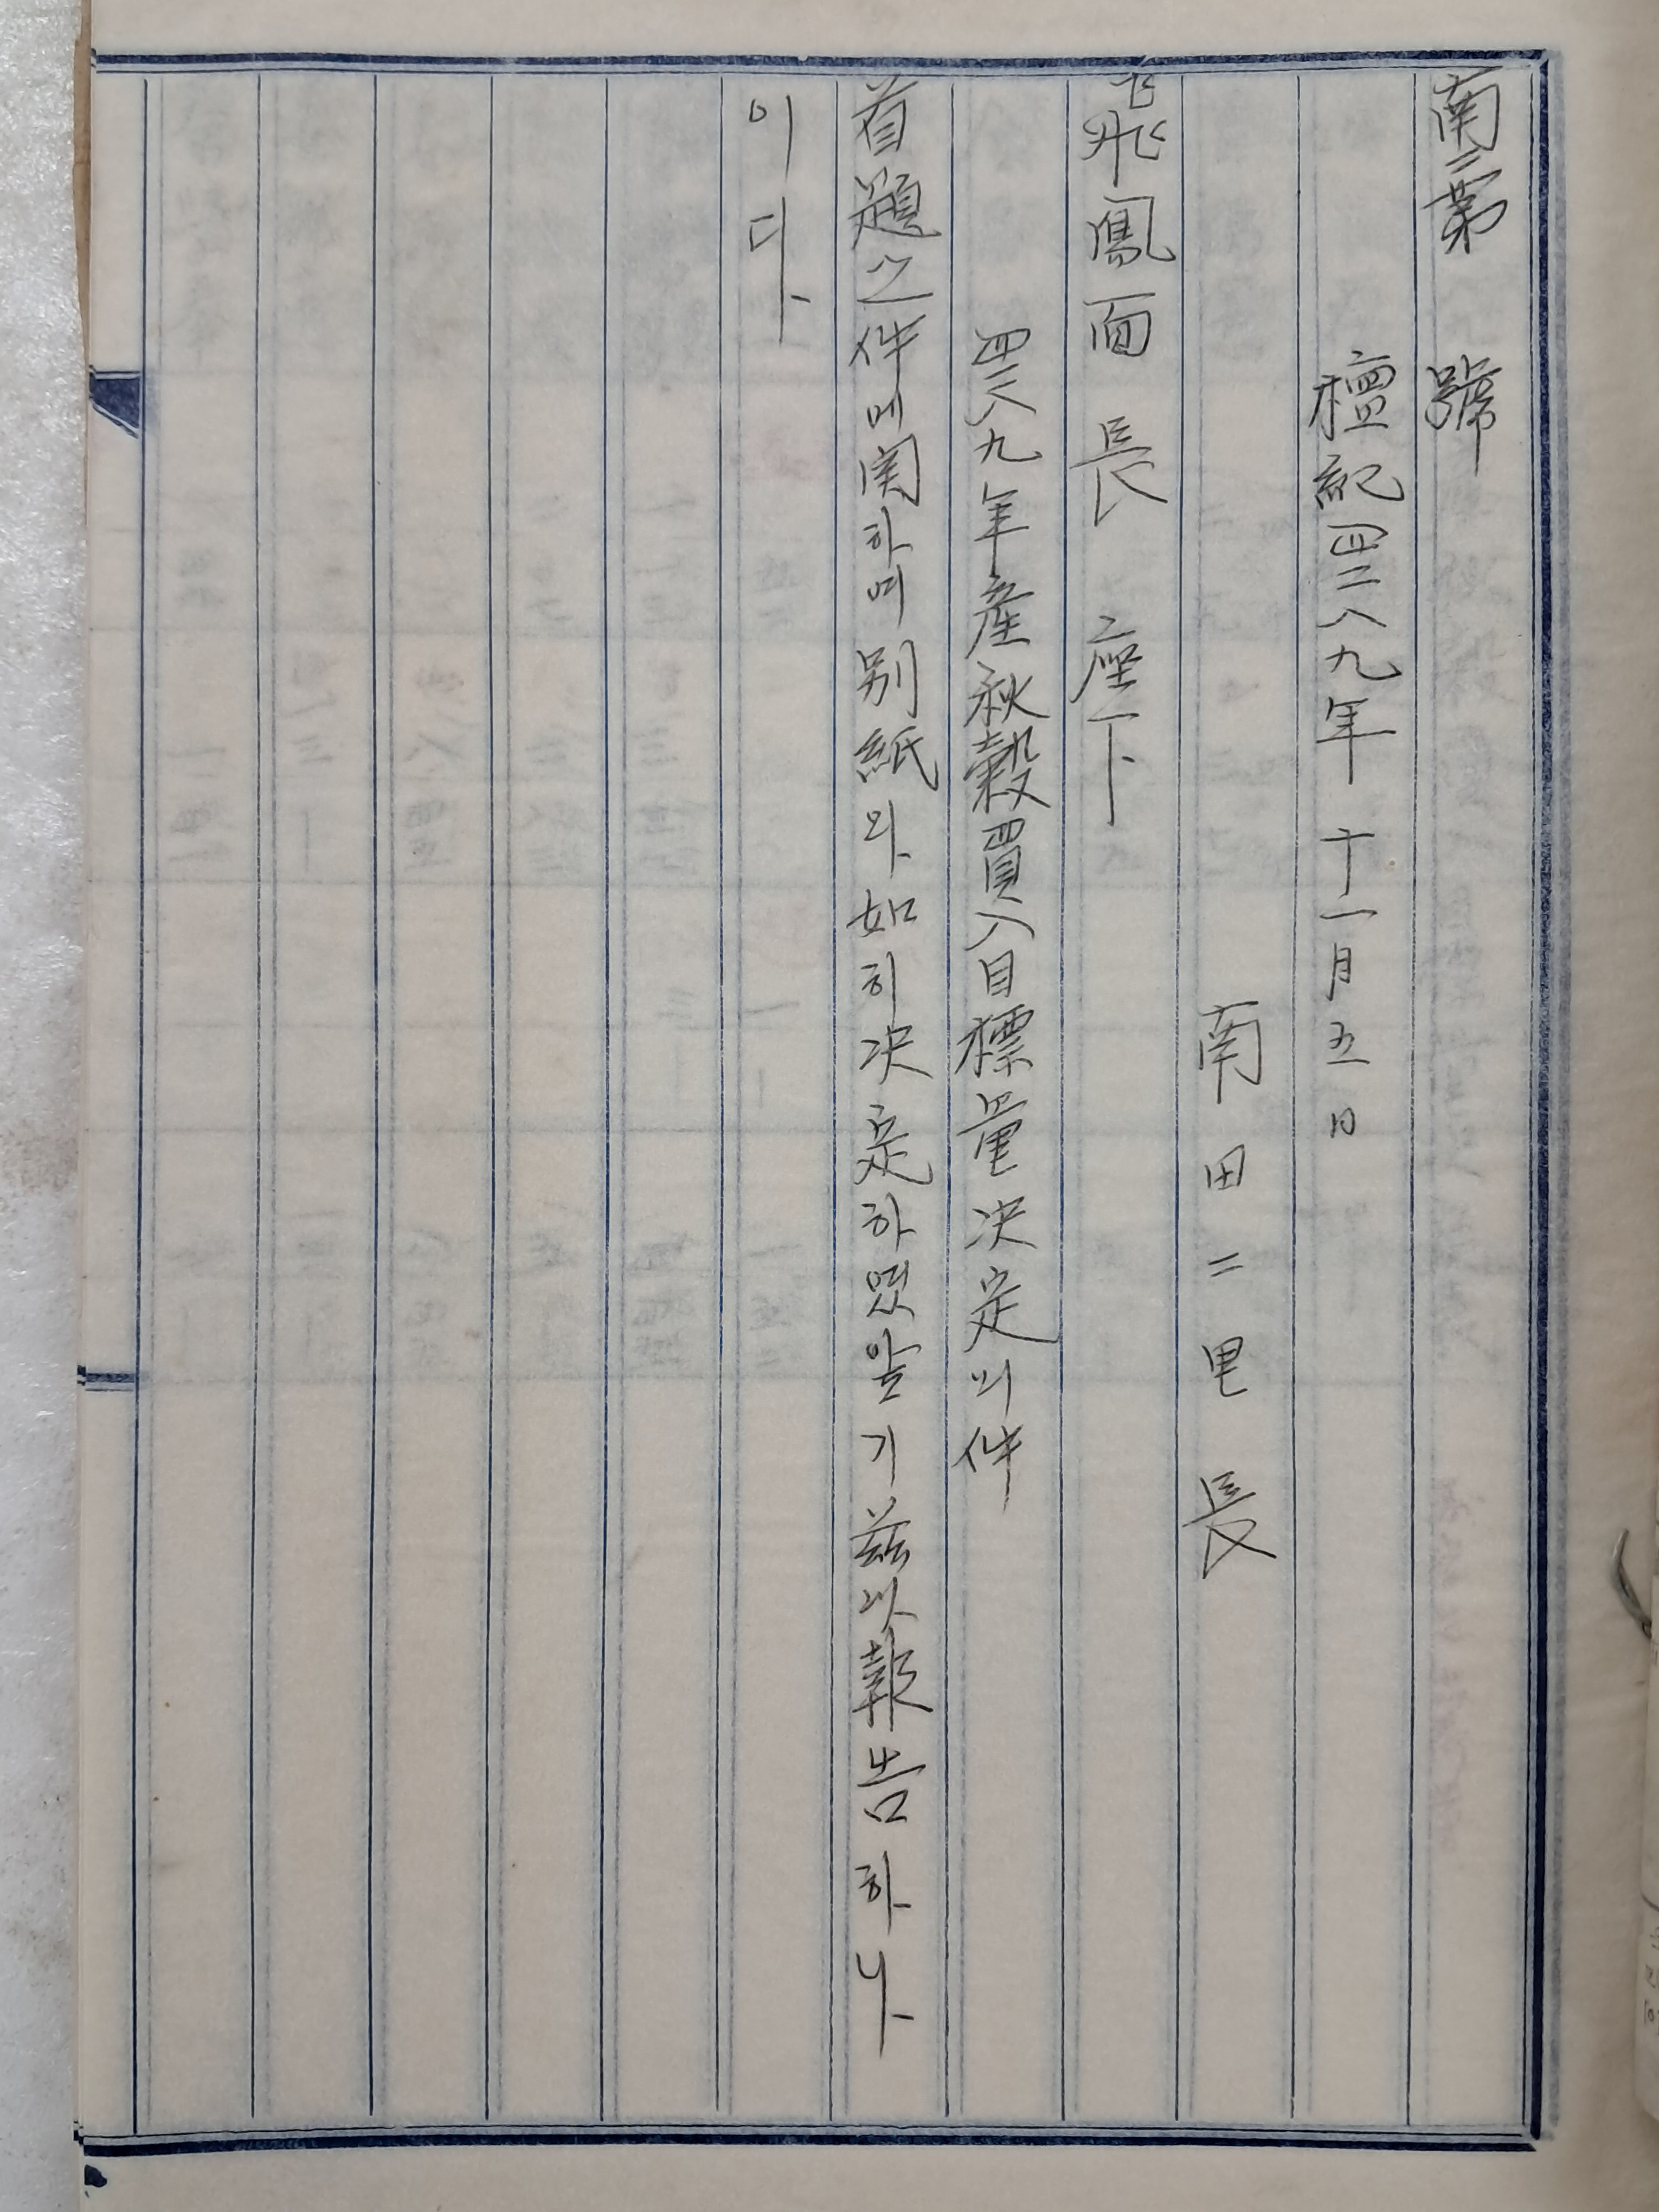 南二第 號
檀紀四二八九年 十一月五日
南田二里長
飛鳳面長 座下
四二八九年産秋穀買入目標量决定의件
首題之件에関하여别紙와如히决定하였압기玆以報告하나
이다